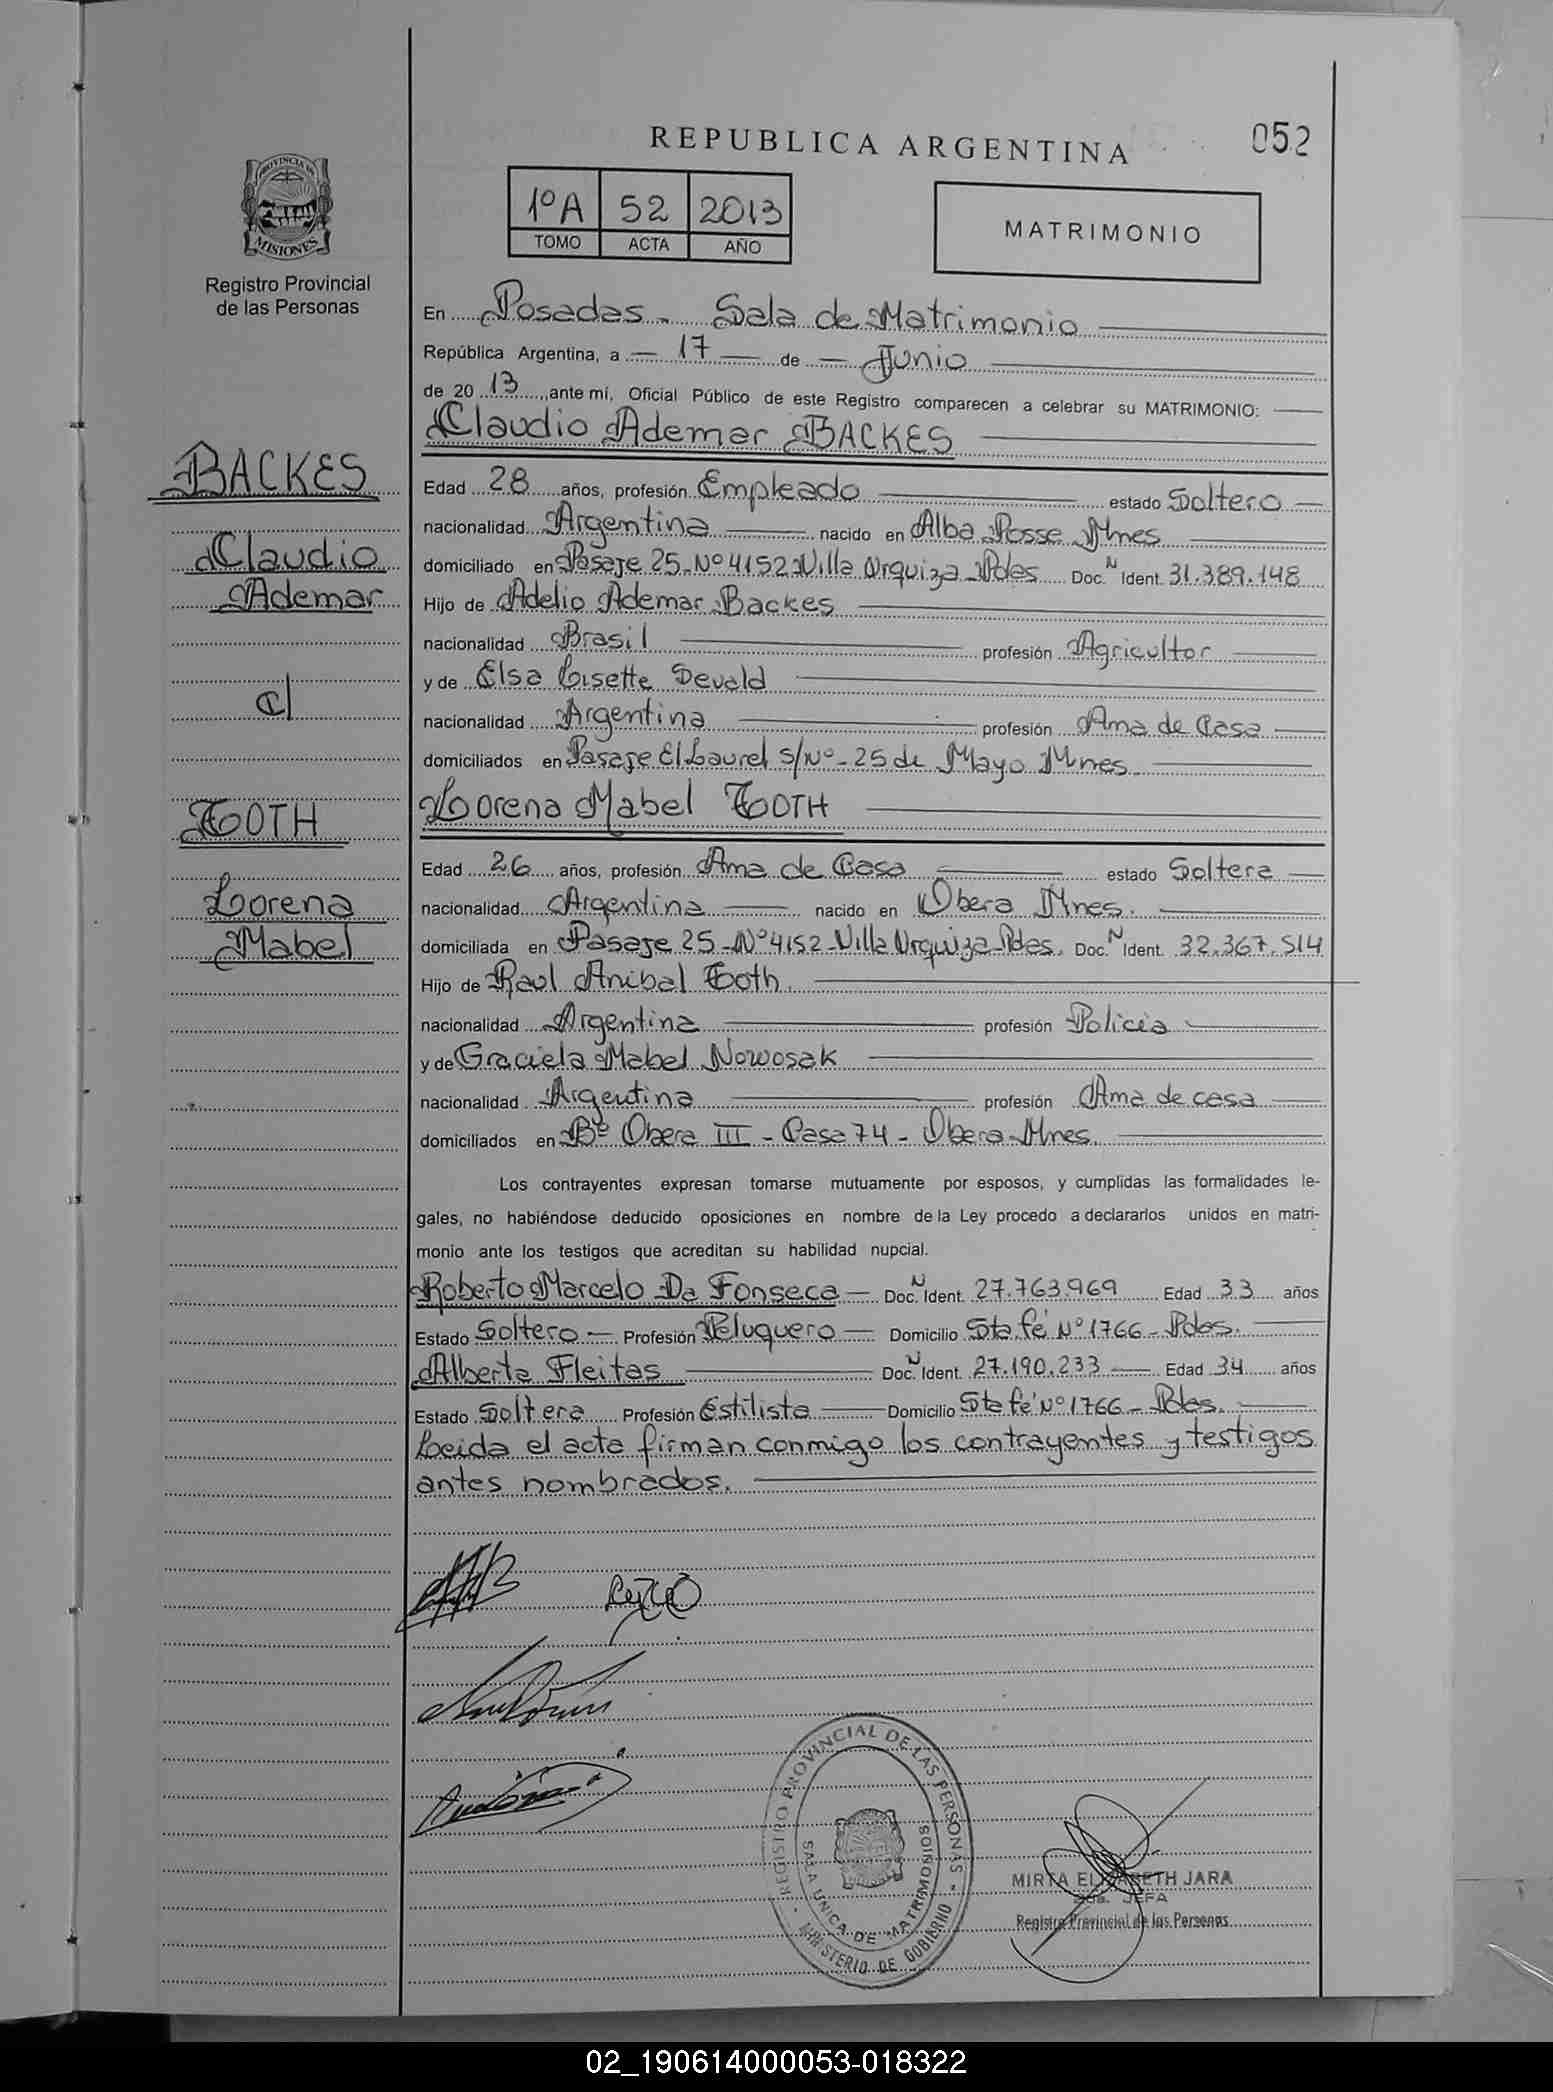 REPUBLICA ARGENTINA
052
1ºA 52 2013
TOMO ACTA AÑO
MATRIMONIO
PROVINCIA DE
MISIONES
Registro Provincial
de las Personas
En Posadas - Sala de Matrimonio
República Argentina, a 17 de Junio
de 2013, ante mí, Oficial Público de este Registro comparecen a celebrar su MATRIMONIO:
Claudio Ademar BACKES
BACKES
Claudio
Ademar
c/
TOTH
Lorena
Mabel
Edad 28 años, profesión Empleado estado Soltero
nacionalidad Argentina nacido en Alba Posse Mnes
domiciliado en Pasaje 25-Nº 4152-Villa Urquiza-Pdas Doc. N Ident. 31.389.148
Hijo de Adelio Ademar Backes
nacionalidad Brasil profesión Agricultor
y de Elsa Lisette Devald
nacionalidad Argentina profesión Ama de Casa
domiciliados en Pasaje El Laurel s/Nº-25 de Mayo Mnes.
Lorena Mabel TOTH
Edad 26 años, profesión Ama de Casa estado Soltera
nacionalidad Argentina nacido en Obera Mnes.
domiciliada en Pasaje 25-Nº4152-Villa Urquiza-Pdas. Doc. N Ident. 32.367.514
Hijo de Raul Anibal Toth.
nacionalidad Argentina profesión Policia
y de Graciela Mabel Nowosak
nacionalidad Argentina profesión Ama de casa
domiciliados en Bº Obera III - Casa 74 - Obera-Mnes.
Los contrayentes expresan tomarse mutuamente por esposos, y cumplidas las formalidades le-
gales, no habiéndose deducido oposiciones en nombre de la Ley procedo a declararlos unidos en matri-
monio ante los testigos que acreditan su habilidad nupcial.
Roberto Marcelo Da Fonseca Doc. N Ident. 27.763.969 Edad 33 años
Estado Soltero Profesión Peluquero Domicilio Sta fé Nº 1766 - Pdas.
Alberta Fleitas Doc. N Ident. 27.190.233 Edad 34 años
Estado Soltera Profesión Estilista Domicilio Sta fé Nº 1766 - Pdas.
Leida el acta firman conmigo los contrayentes y testigos
antes nombrados.
REGISTRO PROVINCIAL DE LAS PERSONAS
SALA UNICA DE MATRIMONIOS
MINISTERIO DE GOBIERNO
MIRTA ELIZABETH JARA
JEFA
Registro Provincial de las Personas
02_190614000053-018322